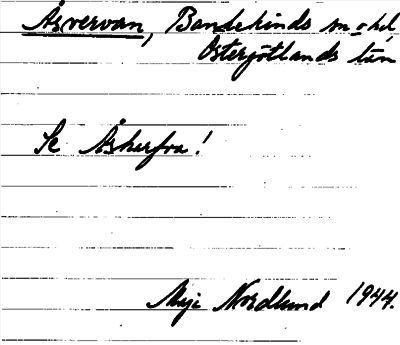 Åsvervan, Bandekinds sn o hd
Östergötlands län
Se Åsherfra!
Maja Nordlund 1944.